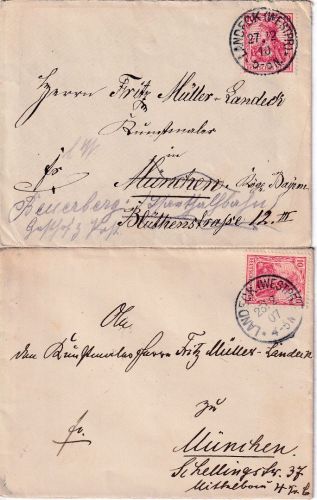 LANDECK (WESTPR)
27.12
10
5-6N
Herrn Fritz Müller-Landeck
Kunstmaler
in
Fr München Bayern
Feuerberg (Isarthalbahn)
Blüthenstraße 12 III
10
LANDECK (WESTPR)
07
4-5N
An
den Kunstmaler Herrn Fritz Müller-Landeck
zu
fr. München.
Schellingstr. 37
Mittelbau